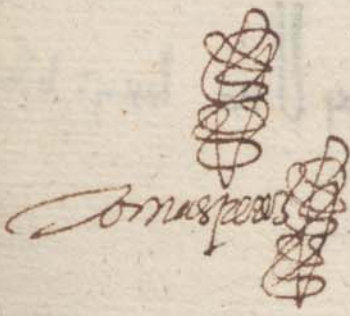 Tomas perez